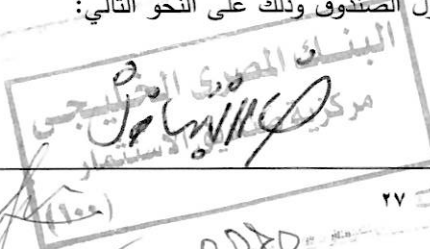 ول الصندوق وذلك على النحو التالي:
البنك المصرى الخليجي
مركزية صناديق الاستثمار
(١٠٠)
٢٧